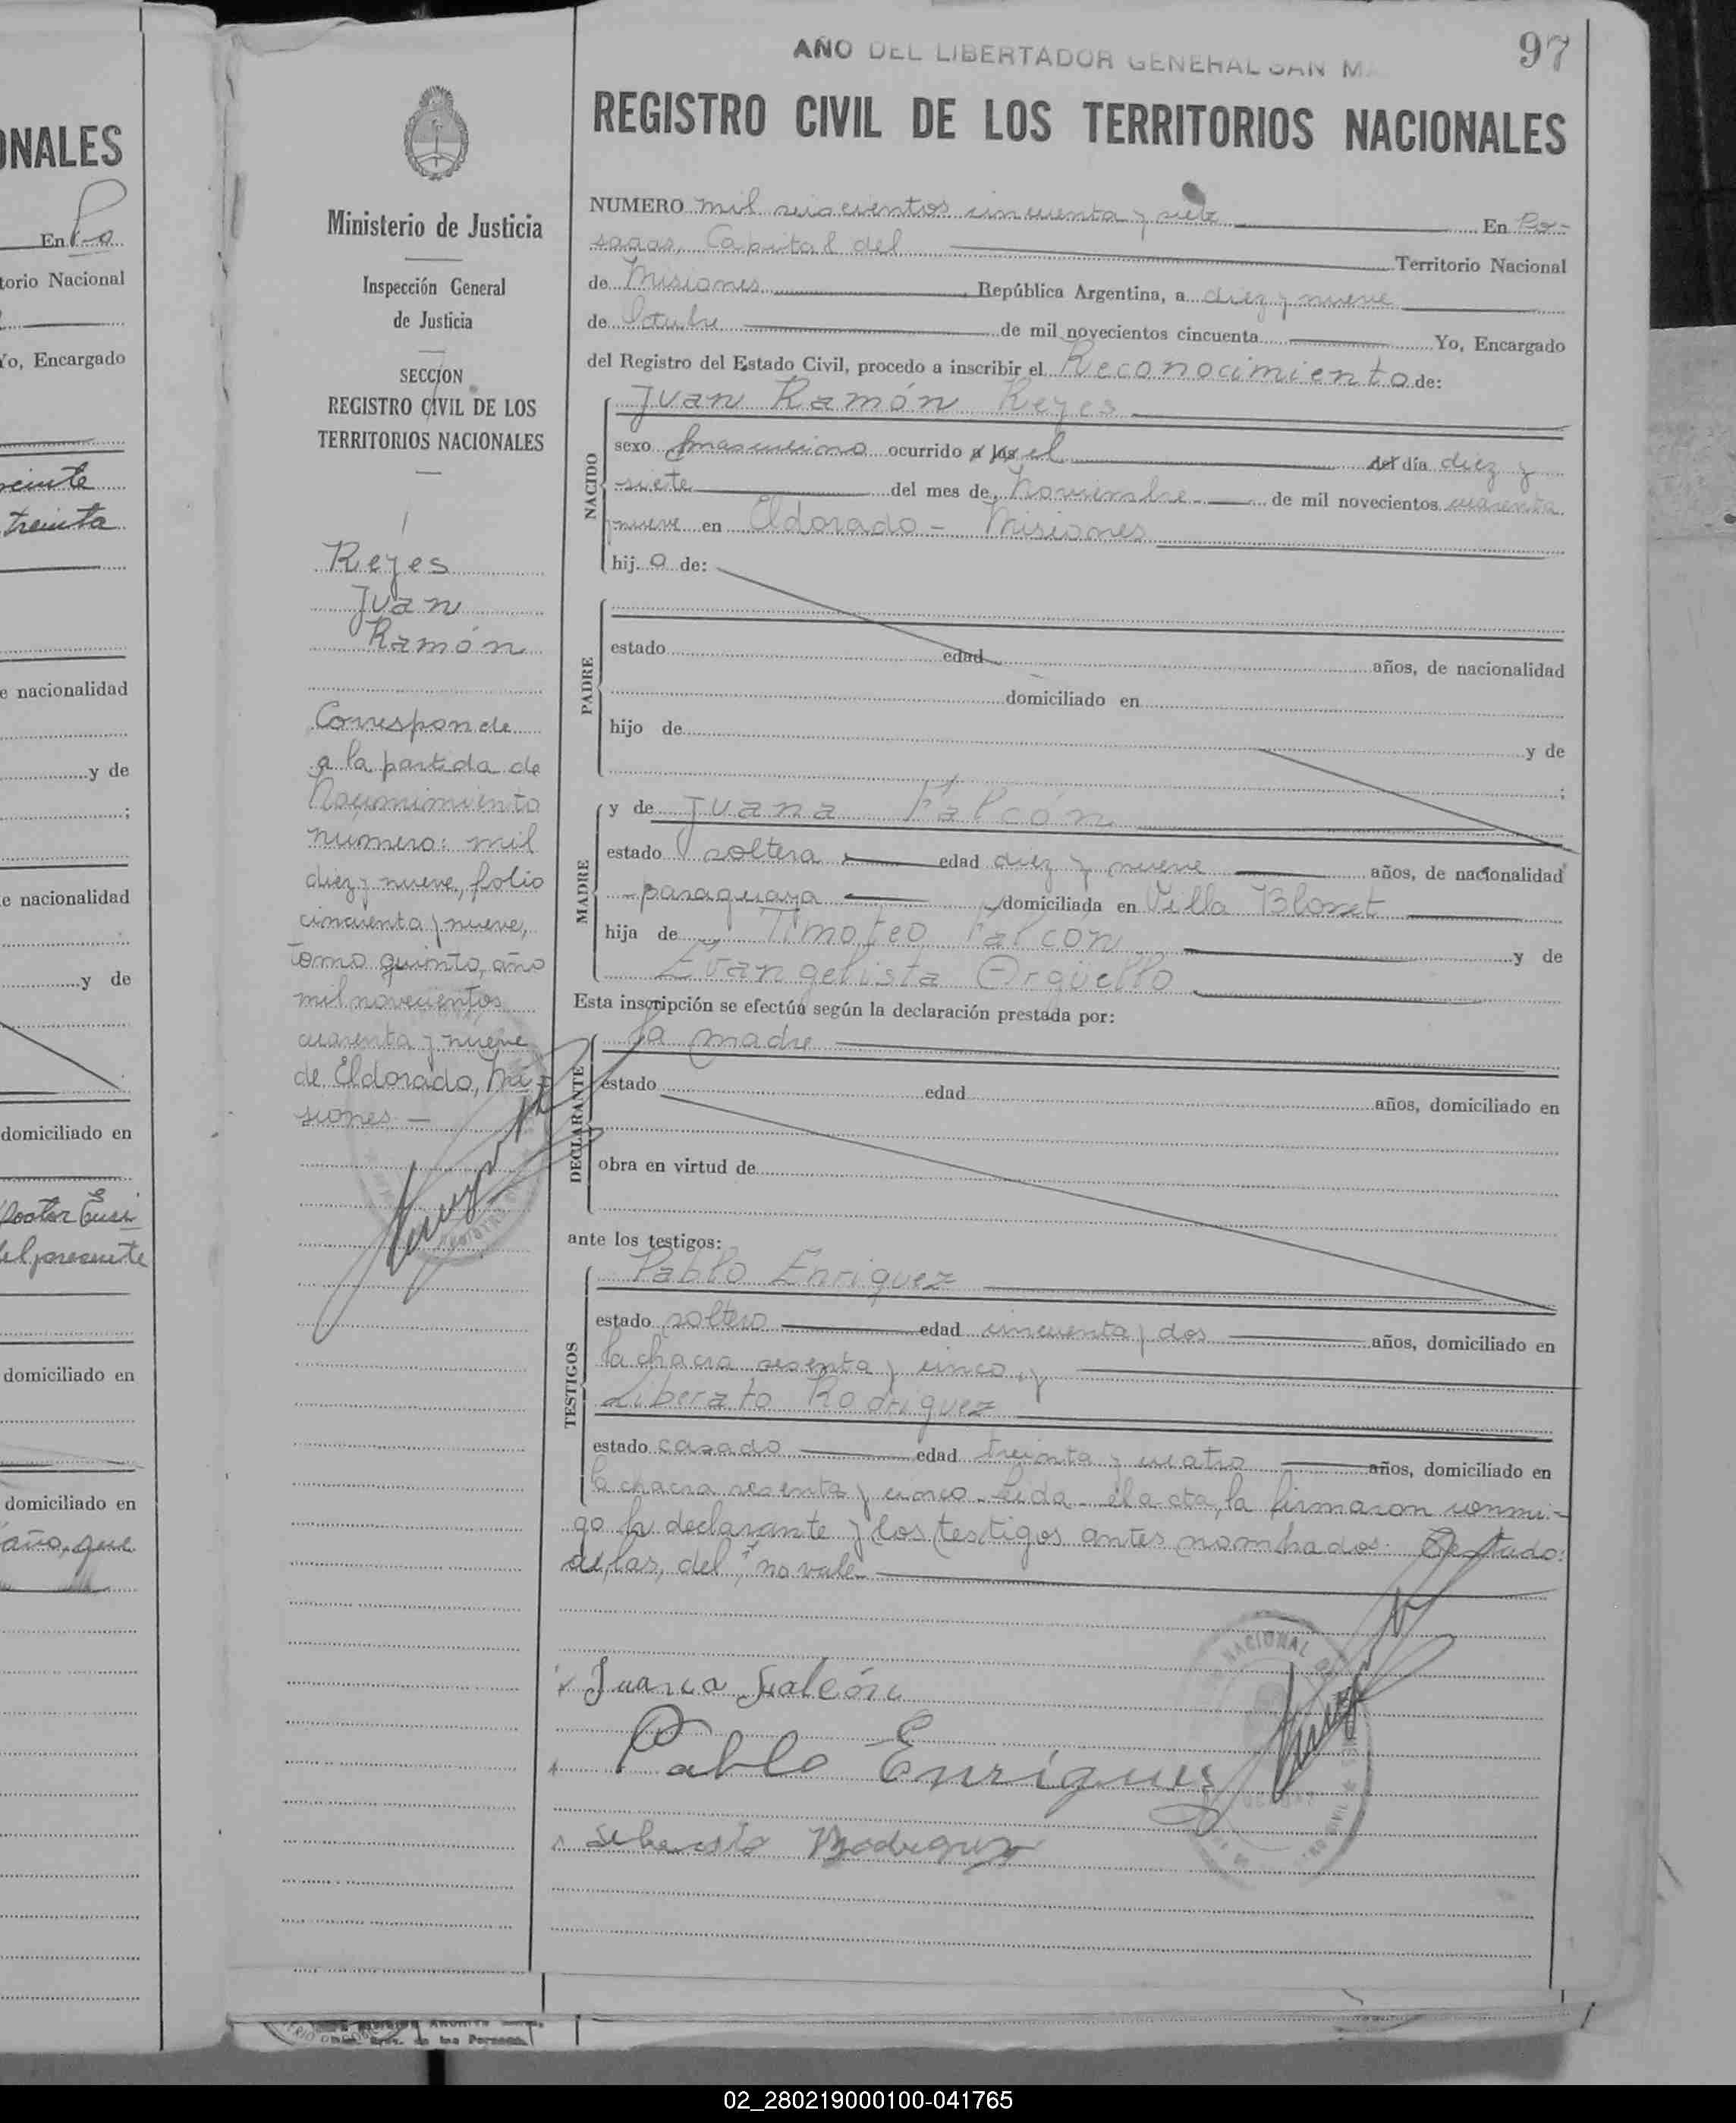 ONALES
En Po
torio Nacional
Yo, Encargado
veinte
treinta
e nacionalidad
y de
;
e nacionalidad
y de
domiciliado en
Doctor Eusi
el presente
domiciliado en
domiciliado en
año, que
AÑO DEL LIBERTADOR GENERAL SAN MA
97
REGISTRO CIVIL DE LOS TERRITORIOS NACIONALES
Ministerio de Justicia
Inspección General
de Justicia
SECCION
REGISTRO CIVIL DE LOS
TERRITORIOS NACIONALES
Reyes
Juan
Ramón
Corresponde
a la partida de
Nacimimiento
número: mil
diez y nueve, folio
cincuenta y nueve,
tomo quinto, año
mil novecientos
cuarenta y nueve
de Eldorado, Mi-
siones —
NUMERO mil seiscientos cincuenta y siete En Po-
sadas, Capital del Territorio Nacional
de Misiones República Argentina, a diez y nueve
de Octubre de mil novecientos cincuenta Yo, Encargado
del Registro del Estado Civil, procedo a inscribir el Reconocimiento de:
NACIDO
Juan Ramón Reyes
sexo masculino ocurrido a las el del día diez y
siete del mes de Noviembre de mil novecientos cuarenta
y nueve en Eldorado - Misiones
hij o de:
PADRE
estado edad años, de nacionalidad
domiciliado en
hijo de y de
;
MADRE
y de Juana Falcón
estado soltera edad diez y nueve años, de nacionalidad
paraguaya domiciliada en Villa Blosset
hija de Timoteo Falcón y de
Evangelista Orgüello
Esta inscripción se efectúa según la declaración prestada por:
DECLARANTE
la madre
estado edad años, domiciliado en
obra en virtud de
ante los testigos:
TESTIGOS
Pablo Enriquez
estado soltero edad cincuenta y dos años, domiciliado en
la chacra sesenta y cinco, y
Liberato Rodriguez
estado casado edad treinta y cuatro años, domiciliado en
la chacra sesenta y cinco. Leida el acta, la firmaron conmi-
go la declarante y los testigos antes nombrados. Testado:
a, las, del, no vale
Juana Falcón
Pablo Enriques
Liberato Rodriguez
NACIONAL
02_280219000100-041765